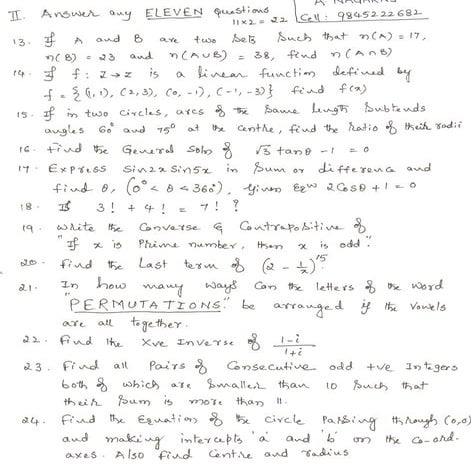 A NAGARAJ
II. Answer any ELEVEN questions
11x2 = 22
Cell: 9845222682
13. If A and B are two sets such that n(A) = 17,
n(B) = 23 and n(A∪B) = 38, find n(A∩B)
14. If f: Z→Z is a linear function defined by
f = {(1,1), (2,3), (0,-1), (-1,-3)} find f(x)
15. If in two circles, arcs of the same length subtends
angles 60° and 75° at the centre, find the ratio of their radii
16. Find the General Soln of √3 tanθ - 1 = 0
17. Express Sin2x Sin5x in Sum or difference and
find θ, (0° < θ < 360°), given Eqn 2Cosθ + 1 = 0
18. Is 3! + 4! = 7! ?
19. Write the Converse & Contrapositive of
"If x is Prime number, then x is odd."
20. Find the Last term of (2 - 1/x)^15
21. In how many ways Can the letters of the word
"PERMUTATIONS" be arranged if the vowels
are all together.
22. Find the Xve Inverse of 1-i/1+i
23. Find all Pairs of Consecutive odd +ve Integers
both of which are Smaller than 10 Such that
their Sum is more than 11.
24. Find the Equation of the circle Passing through (0,0)
and making intercepts 'a' and 'b' on the Co-ord.
axes. Also find Centre and radius